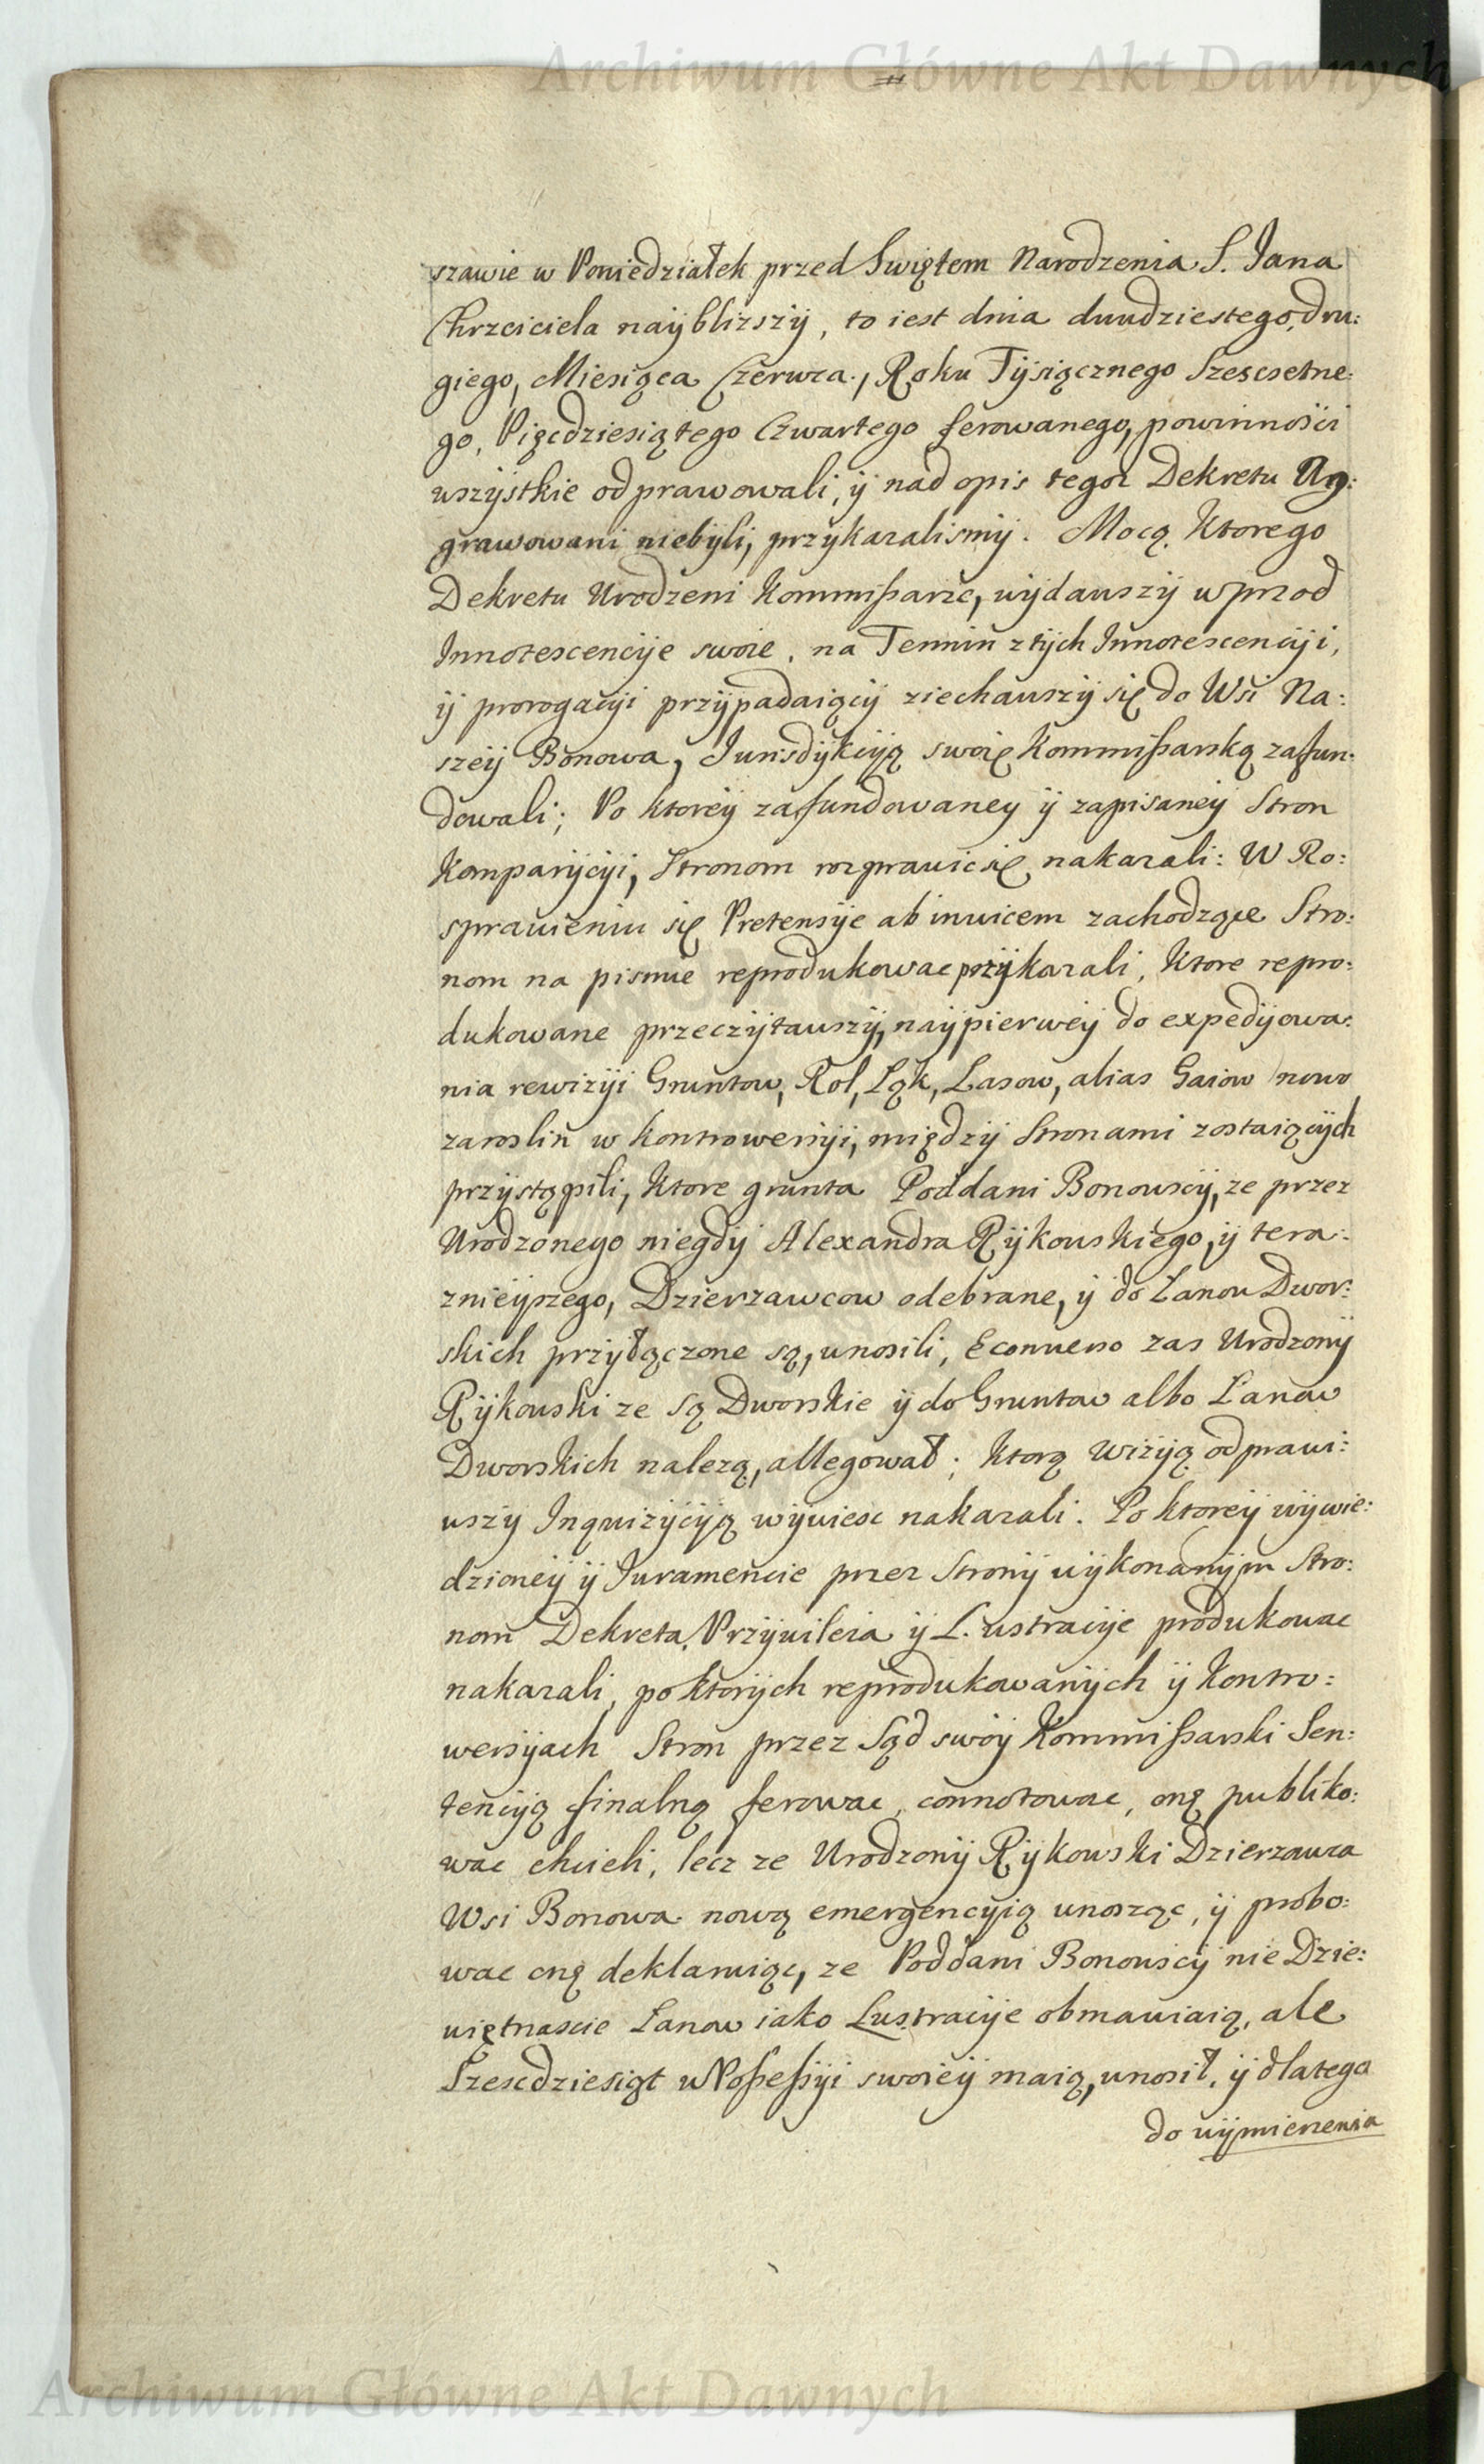 Archiwum Główne Akt Dawnych
szawie w Poniedziałek przed Swiętem Narodzenia S. Jana
Chrzciciela nayblizszÿ, to iest dnia dwudziestego, dru:
giego, Miesiąca Czerwca, Roku Tÿsiącznego Szescsetne:
go, Pięcdziesiątego Czwartego ferowanego, powinnosci
wszÿstkie odprawowali, ÿ nad opis tegoz Dekretu Ag:
grawowani niebÿli, przykazalismÿ. Mocą Ktorego
Dekretu Urodzeni Kommißarze, wÿdawszÿ wprzod
Innotescencÿe swoie, na Termin z tÿch Innotescencÿi,
ÿ prorogacÿi przÿpadaiącÿ ziechawszÿ się do Wsi Na:
szeÿ Bonowa, Jurisdÿkcÿą swoię Kommißarską zafun:
dowali; Po ktoreÿ zafundowaney ÿ zapisaneÿ Stron
Komparÿcÿi, Stronom rozprawic się nakazali: W Ro:
sprawieniu się Pretensÿe ab invicem zachodzące Stro:
nom na pismie reprodukowac przÿkazali, Ktore repro:
dukowane przeczÿtawszÿ, naÿpierweÿ do expedÿowa:
nia rewizÿi Gruntow, Rol, Łąk, Lasow, alias Gaiow nowo
zaroslin w kontrowersÿi, międzÿ Stronami zostaiącÿch
przÿstąpili, Ktore grunta Poddani Bonowscÿ, ze przez
Urodzonego niegdÿ Alexandra Rÿkowskiego, ÿ tera:
znieÿszego, Dzierzawcow odebrane, ÿ do Łanow Dwor:
skich przÿłączone są, unosili, Econverso zas Urodzonÿ
Rÿkowski ze są Dworskie ÿ do Gruntow albo Łanow
Dworskich nalezą, allegował; Ktorą wizÿą odprawi:
wszÿ Inquizÿcÿą wÿwiesc nakazali. Po ktoreÿ wÿwie:
dzioneÿ ÿ Juramencie przez Stronÿ wÿkonanÿm Stro:
nom Dekreta, Przÿwileia ÿ Lustracÿe produkowac
nakazali, po ktorÿch reprodukowanÿch ÿ Kontro:
wersÿach Stron przez Sąd swoÿ Kommißarski Sen:
tencÿą finalną ferowac, connotowac, onę publiko:
wac chcieli, lecz ze Urodzonÿ Rÿkowski Dzierzawca
Wsi Bonowa nową emergencÿią unosząc, ÿ probo:
wac onę deklaruiąc, ze Poddani Bonowscÿ nie Dzie:
więtnascie Łanow iako Lustracÿe obmawiaią, ale
Szescdziesiąt w Poßeßÿi swoieÿ maią, unosił, ÿ dlatego
do wÿmierzenia
Archiwum Główne Akt Dawnych